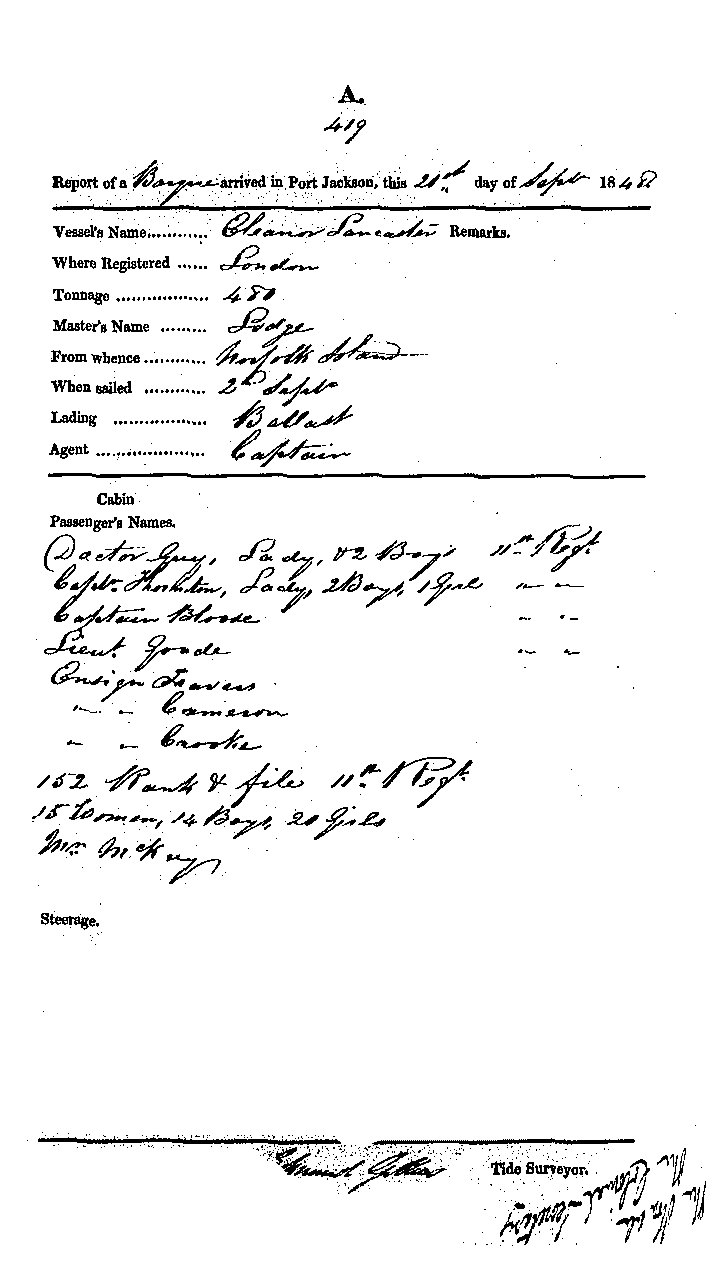 A.
419
Report of a Barque arrived in Port Jackson, this 21st day of Sept 1848
Vessel's Name........... Eleanor Lancaster Remarks.
Where Registered ...... London
Tonnage .................. 480
Master's Name ......... Lodge
From whence............ Norfolk Island
When sailed ............ 2nd Sept
Lading .................. Ballast
Agent ..................... Captain
Cabin
Passenger's Names.
Doctor Guy, Lady, & 2 Boys 11th Regt
Captn. Thornton, Lady, 2 Boys, 1 Girl " "
Captain Blosse " "
Lieut. Goode " "
Ensign Travers
" " Cameron
" " Crooke
152 Rank & file 11th Regt.
15 Women, 14 Boys, 20 Girls
Mr McKay
Steerage.
Tide Surveyor.
The Honble
The Colonial Secretary